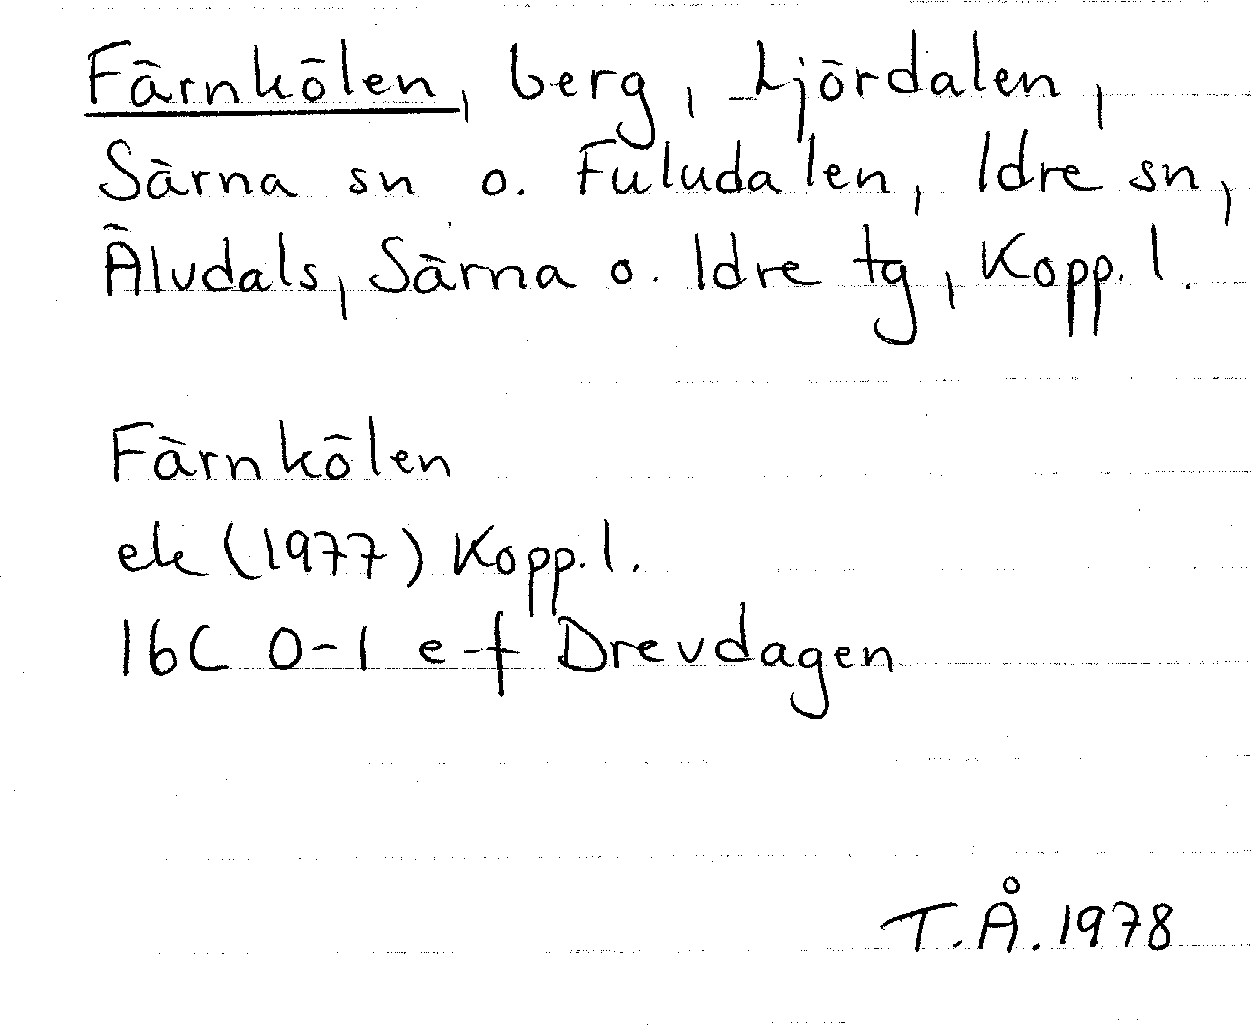 Färnkölen, berg, Ljördalen,
Särna sn o. Fuludalen, Idre sn,
Älvdals, Särna o. Idre tg, Kopp. l.
Färnkölen
ek (1977) Kopp. l.
16C 0-1 e-f Drevdagen
T.Å. 1978